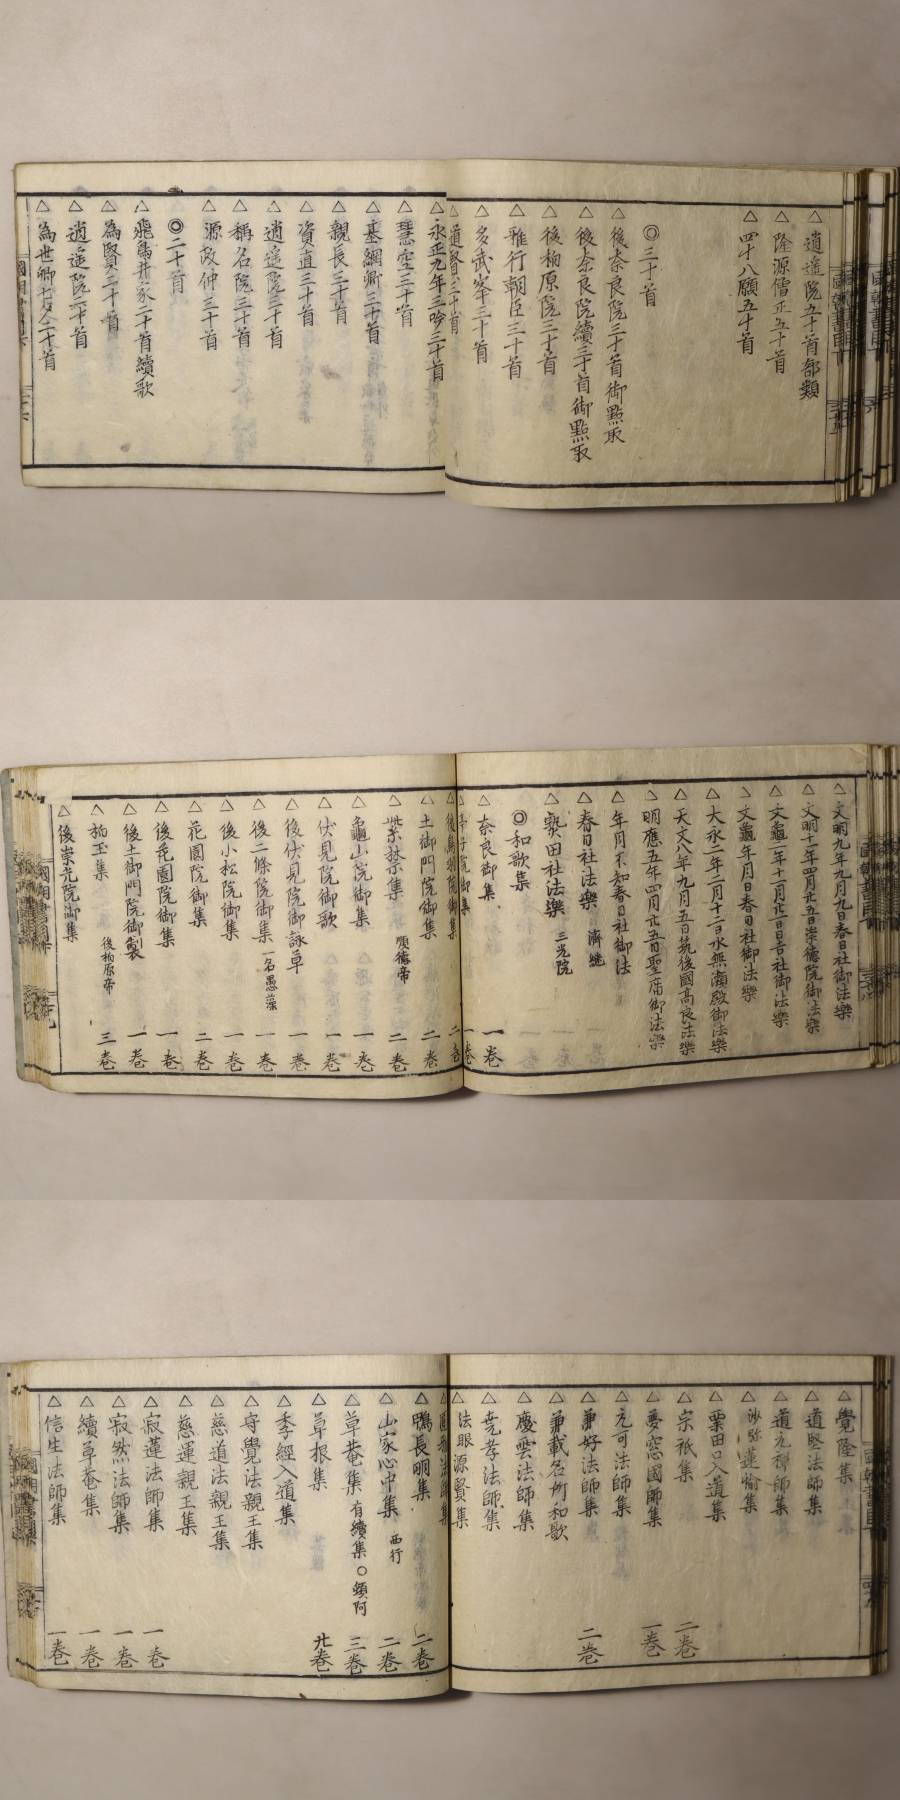 △逍遥院五十首部類
△隆源僧正五十首
△四十八願五十首
◎三十首
△後奈良院三十首御點取
△後奈良院續三十首御點取
△後柏原院三十首
△雅行朝臣三十首
△多武峯三十首
△道賢三十首
△永正九年三吟三十首
△慧空三十首
△基綱卿三十首
△親長三十首
△資直三十首
△逍遥院三十首
△稱名院三十首
△源政仲三十首
◎二十首
△飛鳥井家二十首續歌
△為賢二十首
△逍遥院二十首
△為世卿二十首
△文明九年九月九日春日社御法樂
△文明十一年四月廿五日崇德院御法樂
△文龜二年十二月廿一日日吉社御法樂
△文龜年月日春日社御法樂
△大永二年二月十二日水無瀨殿御法樂
△天文八年九月五日筑後國高良法樂
△明應五年四月廿五日聖庿御法樂
△年月不知春日社御法
△春日社法樂 濟繼
△熱田社法樂 三光院
◎和歌集
△奈良御集 一卷
△亭子院御集 一卷
△後鳥羽院御集 二卷
△土御門院御集 二卷
△紫禁集 順德帝 二卷
△龜山院御集 一卷
△伏見院御歌 一卷
△後伏見院御詠草 一卷
△後二條院御集 一名愚藻 一卷
△後小松院御集 一卷
△花園院御集 二卷
△後花園院御集 一卷
△後土御門院御製 一卷
△柏玉集 後柏原帝 三卷
△後崇光院御集
△覺隆集
△道堅法師集
△道元禪師集
△沙弥蓮愉集
△粟田口入道集
△宗祇集 二卷
△夢窓國師集 一卷
△元可法師集
△兼好法師集 二卷
△兼載名所和歌
△慶雲法師集
△堯孝法師集
△法眼源賢集
△鴨長明集 二卷
△山家心中集 西行 二卷
△草菴集 有續集 ○頓阿 三卷
△草根集 廿卷
△季經入道集
△守覺法親王集
△慈道法親王集
△慈運親王集
△寂蓮法師集 一卷
△寂然法師集 一卷
△續草菴集 一卷
△信生法師集 一卷